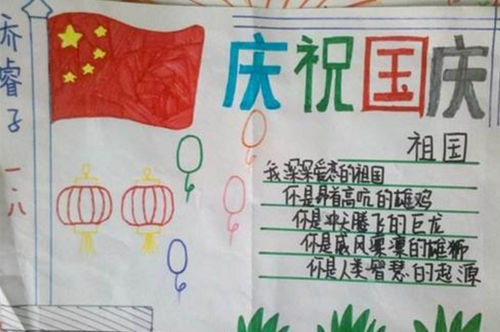 乔睿子 一八
庆祝国庆
祖国
我深深爱恋的祖国
你是昂首高吭的雄鸡
你是冲天腾飞的巨龙
你是威风凛凛的雄狮
你是人类智慧的起源